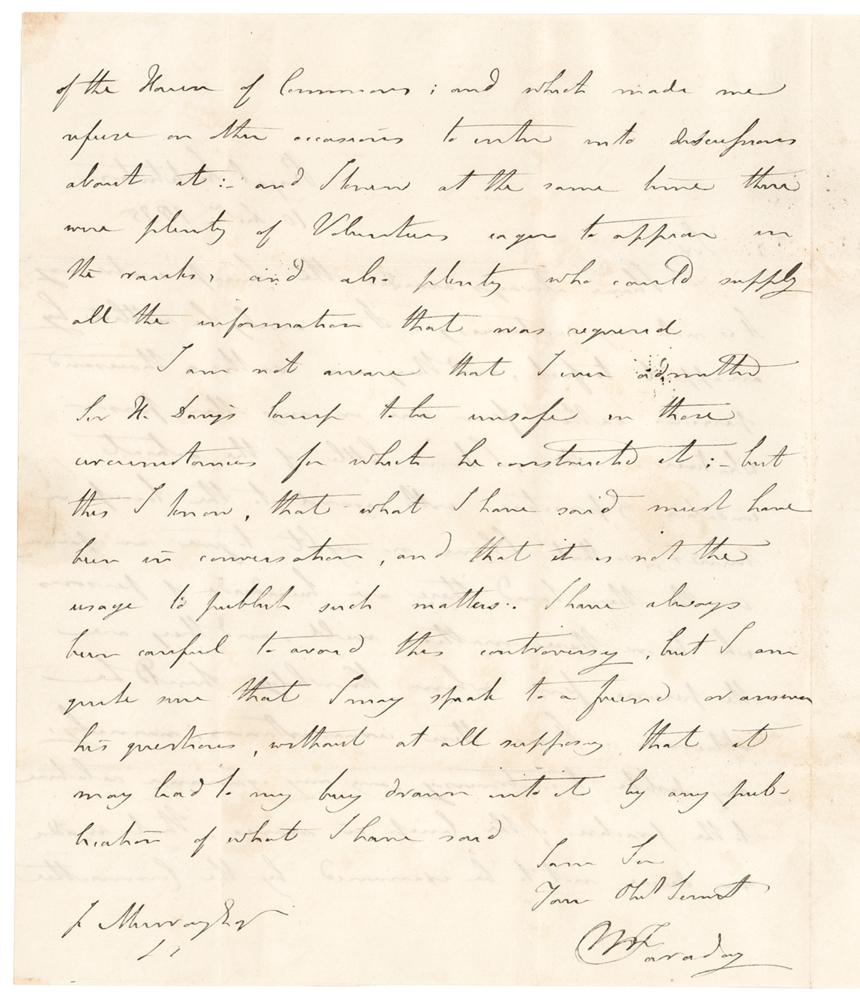 of the House of Commons; and which made me
refuse on other occasions to enter into discussions
about it:- and I knew at the same time there
were plenty of Volunteers eager to appear in
the ranks, and also plenty who could supply
all the information that was required
I am not aware that I ever admitted
Sir H. Davys lamp to be unsafe in those
circumstances for which he constructed it;- but
this I know, that what I have said must have
been in conversation, and that it is not the
usage to publish such matters. I have always
been careful to avoid this controversy, but I am
quite sure that I may speak to a friend or answer
his questions, without at all supposing that it
may lead to my being drawn into it by any pub-
lication of what I have said
I am Sir
Your Obdt Servnt
M Faraday
J Murray Esqr